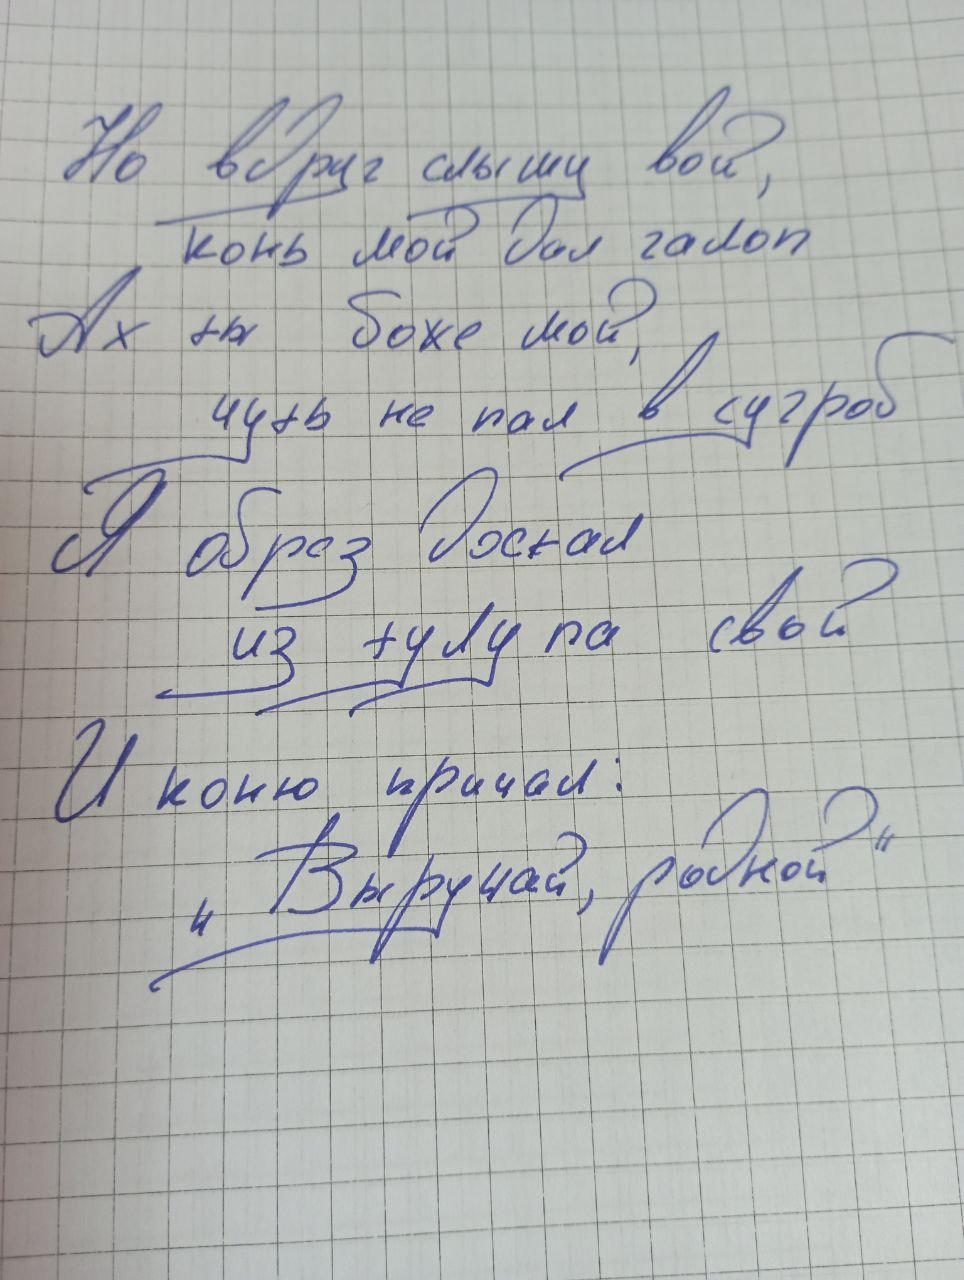 Но вдруг слышу вой,
конь мой дал галоп
Ах ты боже мой,
чуть не пал в сугроб
Я обрез достал
из тулупа свой
И коню кричал:
„Выручай, родной“